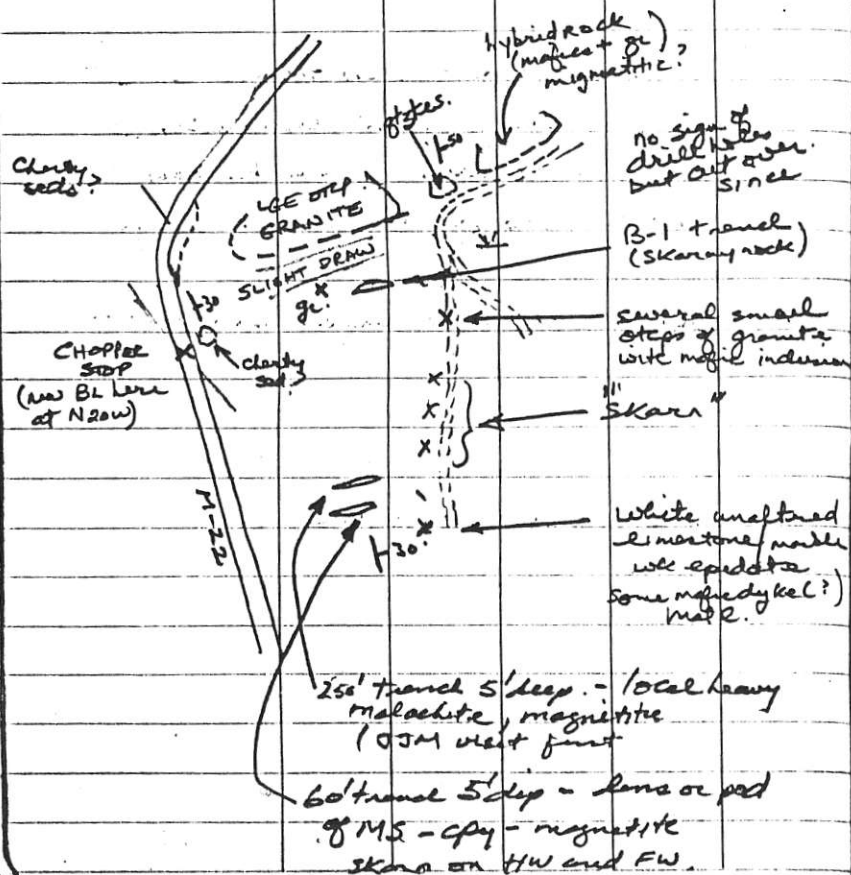 hybrid rock
(mafics + gr)
migmatitic?
stakes.
50
no sign of
drill holes
but cut over
since
Cherty
seds?
LGE OTCP
GRANITE
SLIGHT DRAW
B-1 trench
(Skarny rock)
gr.
30
several small
otcps of granite
with mafic inclusion
CHOPPER
STOP
(new BL here
at N20W)
Cherty
sed?
"Skarn"
M-22
30
White unaltered
limestone/marble
wk epidote
some mafic dyke(?)
matl.
250' trench 5' deep. - local heavy
malachite, magnetite
(OJM visit
60' trench 5' dip - lens or pod
of MS - cpy - magnetite
skarn on HW and FW.